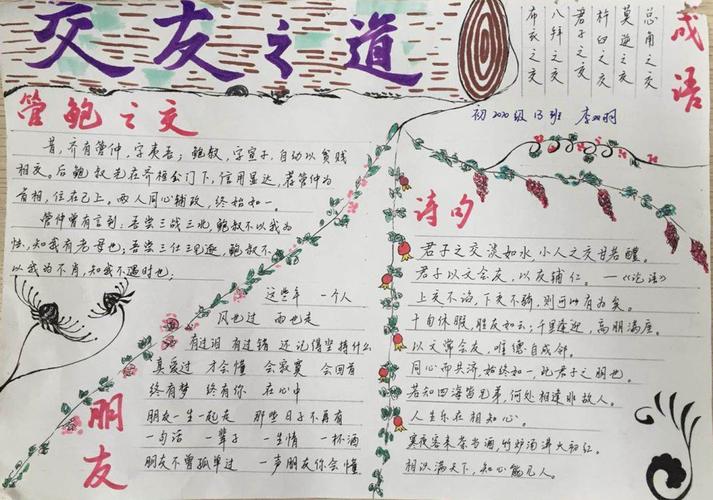 交友之道
成语
总角之交
莫逆之交
杵臼之交
君子之交
八拜之交
布衣之交
初2020级13班 李双明
管鲍之交
昔,齐有管仲,字夷吾;鲍叔,字宣子,自幼以贫贱
相交。后鲍叔先在齐桓公门下,信用显达,荐管仲为
首相,位在己上。两人同心辅政,终始如一。
管仲曾有言到:吾尝三战三北,鲍叔不以我为
怯,知我有老母也;吾尝三仕三见逐,鲍叔不
以我为不肖,知我不遇时也;
朋友
这些年 一个人
风也过 雨也走
有过泪 有过错 还记得坚持什么
真爱过 才会懂 会寂寞 会回首
终有梦 终有你 在心中
朋友一生一起走 那些日子不再有
一句话 一辈子 一生情 一杯酒
朋友不曾孤单过 一声朋友你会懂
诗句
君子之交淡如水,小人之交甘若醴。
君子以文会友,以友辅仁。——《论语》
上交不谄,下交不骄,则可以有为矣。
十旬休暇,胜友如云;千里逢迎,高朋满座。
以文常会友,唯德自成邻。
同心而共济,始终如一,此君子之朋也。
若知四海皆兄弟,何处相逢非故人。
人生乐在相知心。
寒夜客来茶当酒,竹炉汤沸火初红。
相识满天下,知心能几人。